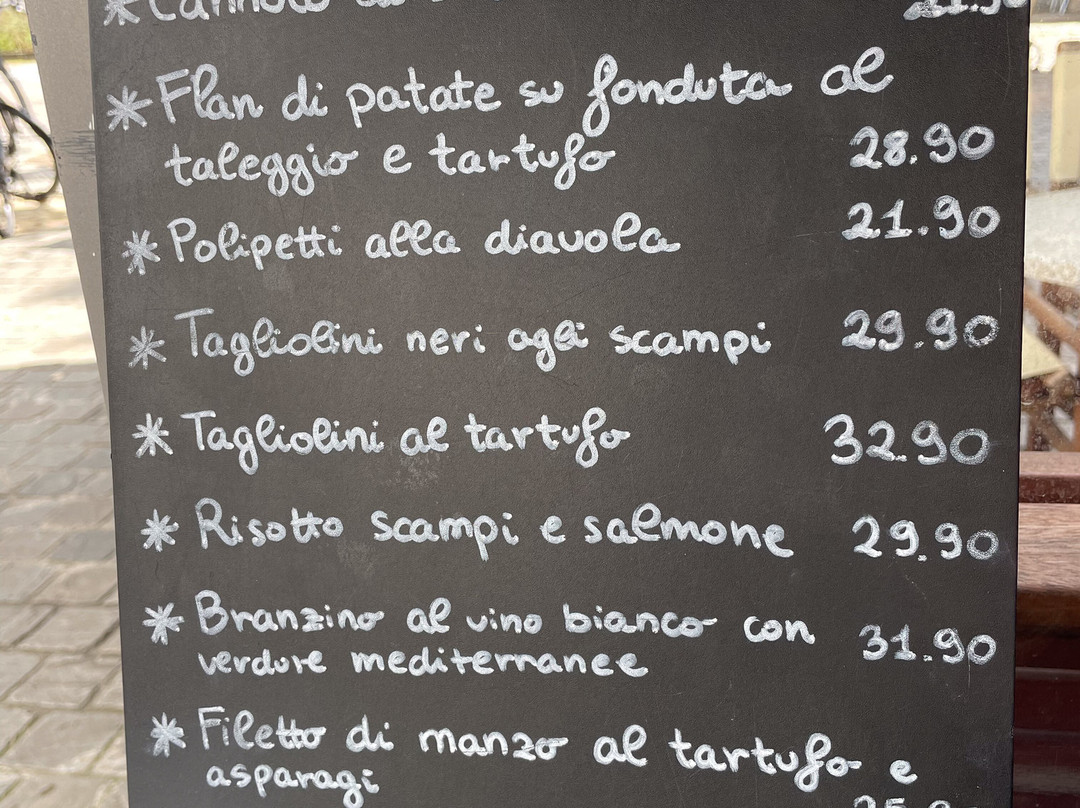 * Flan di patate su fonduta al
taleggio e tartufo 28.90
* Polipetti alla diavola 21.90
* Tagliolini neri agli scampi 29.90
* Tagliolini al tartufo 32.90
* Risotto scampi e salmone 29.90
* Branzino al vino bianco con
verdure mediterranee 31.90
* Filetto di manzo al tartufo e
asparagi